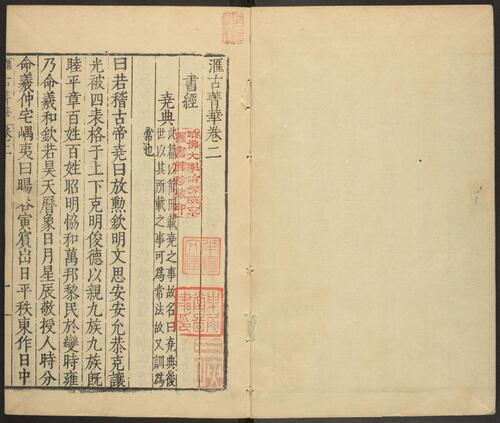 滙古菁華卷二
書經
堯典
此篇以簡冊載堯之事故名曰堯典後
世以其所載之事可爲常法故又訓爲
常也
曰若稽古帝堯曰放勲欽明文思安安允恭克讓
光被四表格于上下克明俊德以親九族九族旣
睦平章百姓百姓昭明協和萬邦黎民於變時雍
乃命羲和欽若昊天曆象日月星辰敬授人時分
命羲仲宅嵎夷曰暘谷寅賓出日平秩東作日中
哈佛大學哈佛燕京
圖書館珍藏印